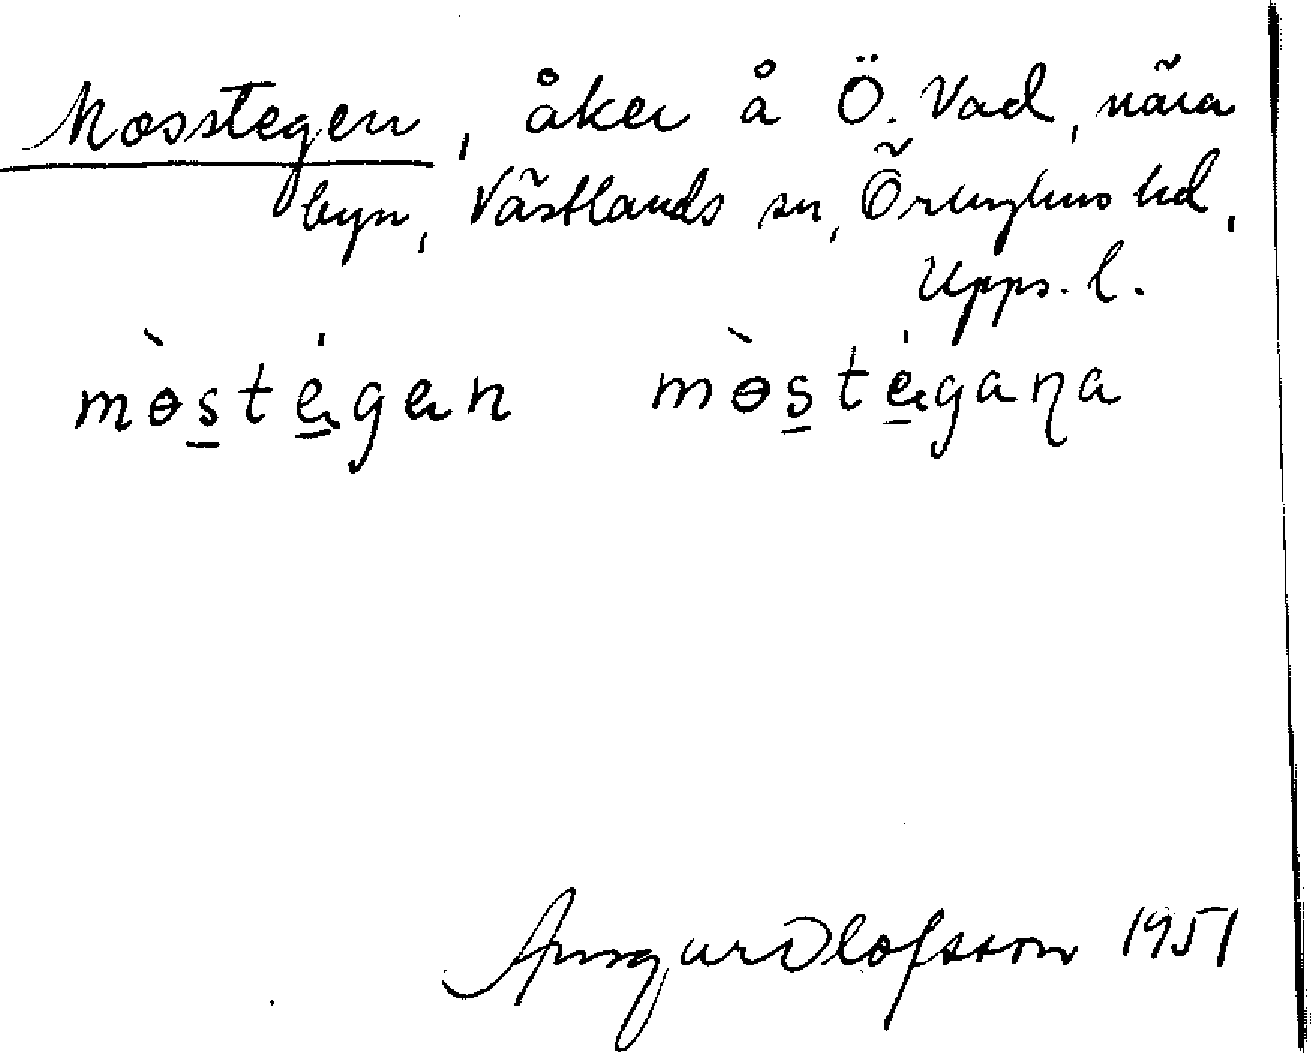 Mosstegen, åker å Ö. Vad, nära
byn, Västlands sn, Örbyhus hd,
Upps. l.
mòs̲té̲gen mòs̲té̲gaɳa
Olofsson 1951